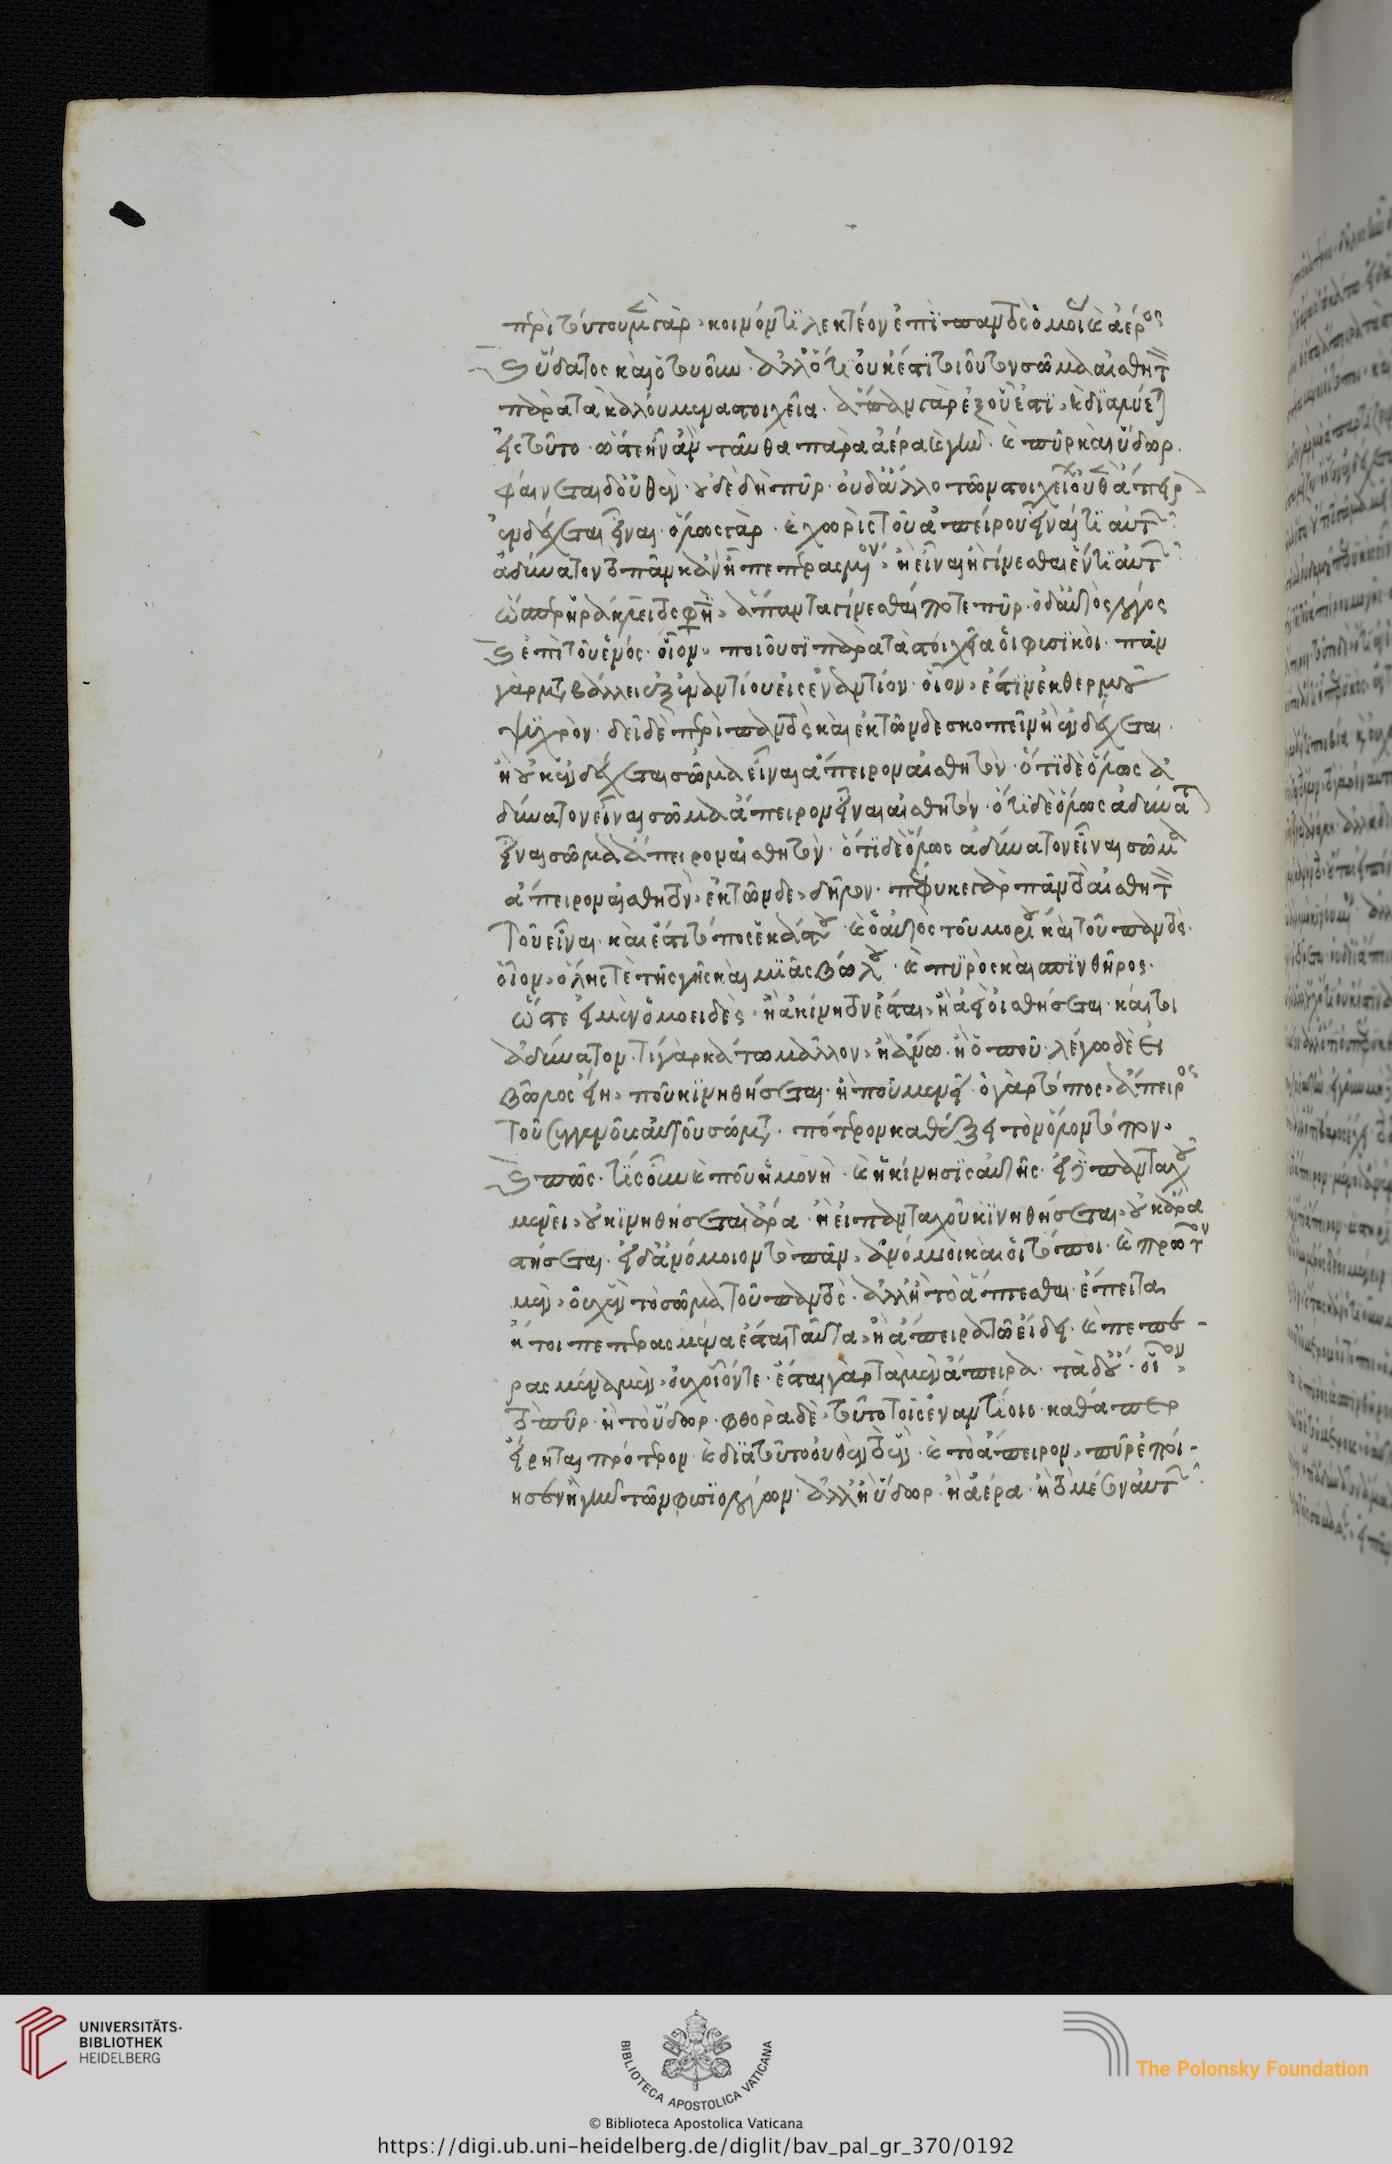 περὶ τούτου μὲν γὰρ · κοινόν τι λεκτέον ἐπὶ παντὸς ὁμοίως καὶ ἀέρος
καὶ ὕδατος καὶ ὁτουοῦν · ἀλλ' ὅτι οὐκ ἔστι τοιοῦτον σῶμα αἰσθητὸν
παρὰ τὰ καλούμενα στοιχεῖα · ἅπαν γὰρ ἐξ οὗ ἐστι · καὶ διαλύεται
εἰς τοῦτο · ὥστε ἦν ἂν ἐνταῦθα παρὰ ἀέρα καὶ γῆν · καὶ πῦρ καὶ ὕδωρ ·
φαίνεται δ' οὐθέν · οὐδὲ δὴ πῦρ · οὐδ' ἄλλο τῶν στοιχείων οὐθὲν ἄπειρον
ἐνδέχεται εἶναι · ὅλως γὰρ · καὶ χωρὶς τοῦ ἄπειρον εἶναί τι αὐτῶν
ἀδύνατον τὸ πᾶν κἂν ᾖ πεπερασμένον · ἢ εἶναι ἢ γίνεσθαι ἕν τι αὐτῶν
ὥσπερ Ἡράκλειτός φησιν · ἅπαντα γίνεσθαί ποτε πῦρ · ὁ δ' αὐτὸς λόγος
καὶ ἐπὶ τοῦ ἑνός · οἷον · ποιοῦσι παρὰ τὰ στοιχεῖα οἱ φυσικοί · πᾶν
γὰρ μεταβάλλει ἐξ ἐναντίου εἰς ἐναντίον · οἷον · ἐστὶν ἐκ θερμοῦ
ψυχρόν · δεῖ δὲ περὶ παντὸς καὶ ἐκ τῶνδε σκοπεῖν ἢ ἐνδέχεται
ἢ οὐκ ἐνδέχεται σῶμα εἶναι ἄπειρον αἰσθητόν · ὅτι δὲ ὅλως ἀ
δύνατον εἶναι σῶμα ἄπειρον εἶναι αἰσθητόν · ὅτι δὲ ὅλως ἀδύνατον
εἶναι σῶμα ἄπειρον αἰσθητόν · ὅτι δὲ ὅλως ἀδύνατον εἶναι σῶμα
ἄπειρον αἰσθητόν · ἐκ τῶνδε · δῆλον · πέφυκε γὰρ πᾶν τὸ αἰσθητὸν
που εἶναι · καὶ ἔστι τόπος ἑκάστου · καὶ ὁ αὐτὸς τοῦ μορίου καὶ τοῦ παντός ·
οἷον · ὅλης τε τῆς γῆς καὶ μιᾶς βώλου · καὶ πυρὸς καὶ σπινθῆρος ·
ὥστε εἰ μὲν ὁμοειδές · ἢ ἀκίνητον ἔσται · ἢ ἀεὶ οἰσθήσεται · καίτοι
ἀδύνατον · τί γὰρ κάτω μᾶλλον · ἢ ἄνω · ἢ ὅπου · λέγω δὲ εἰ
βῶλος εἴη · ποῦ κινηθήσεται · ἢ ποῦ μενεῖ · ὁ γὰρ τόπος · ἄπειρος
τοῦ συγγενοῦς αὐτοῦ σώματος · πότερον καθέξει τὸν ὅλον τόπον ·
καὶ πῶς · τίς οὖν καὶ ποῦ ἡ μονὴ · καὶ ἡ κίνησις αὐτῆς · εἰ πανταχοῦ
μενεῖ · οὐ κινηθήσεται ἄρα · ἢ εἰ πανταχοῦ κινηθήσεται · οὐκ ἄρα
στήσεται · εἰ δ' ἀνόμοιον τὸ πᾶν · ἀνόμοιοι καὶ οἱ τόποι · καὶ πρῶτον
μὲν · οὐχ ἓν τὸ σῶμα τοῦ παντὸς · ἀλλ' ἢ τὸ ἅπτεσθαι · ἔπειτα
ἤτοι πεπερασμένα ἔσται ταῦτα · ἢ ἄπειρα τῷ εἴδει · καὶ πεπε-
ρασμένα μὲν · οὐχ οἷόν τε · ἔσται γὰρ τὰ μὲν ἄπειρα · τὰ δ' οὔ · οἷον
τὸ πῦρ · ἢ τὸ ὕδωρ · φθορὰ δὲ · τοῦτο τοῖς ἐναντίοις · καθάπερ
εἴρηται πρότερον · καὶ διὰ τοῦτο οὐθεὶς τὸ ἓν · καὶ τὸ ἄπειρον · πῦρ ἐποί-
ησεν ἢ γῆν τῶν φυσιολόγων · ἀλλ' ἢ ὕδωρ · ἢ ἀέρα · ἢ τὸ μέσον αὐτῶν
UNIVERSITÄTS-
BIBLIOTHEK
HEIDELBERG
BIBLIOTECA APOSTOLICA VATICANA
The Polonsky Foundation
© Biblioteca Apostolica Vaticana
https://digi.ub.uni-heidelberg.de/diglit/bav_pal_gr_370/0192